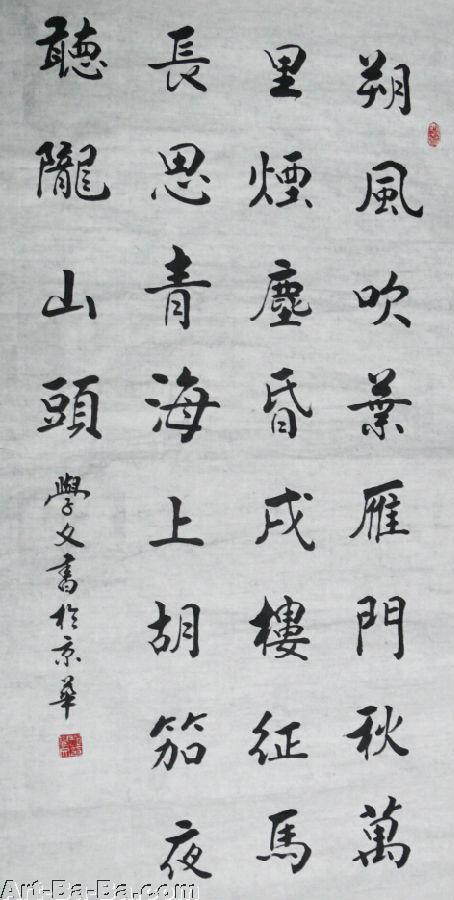 朔風吹葉雁門秋萬
里煙塵昏戍樓征馬
長思青海上胡笳夜
聽隴山頭
學文書於京華
Art-Ba-Ba.com